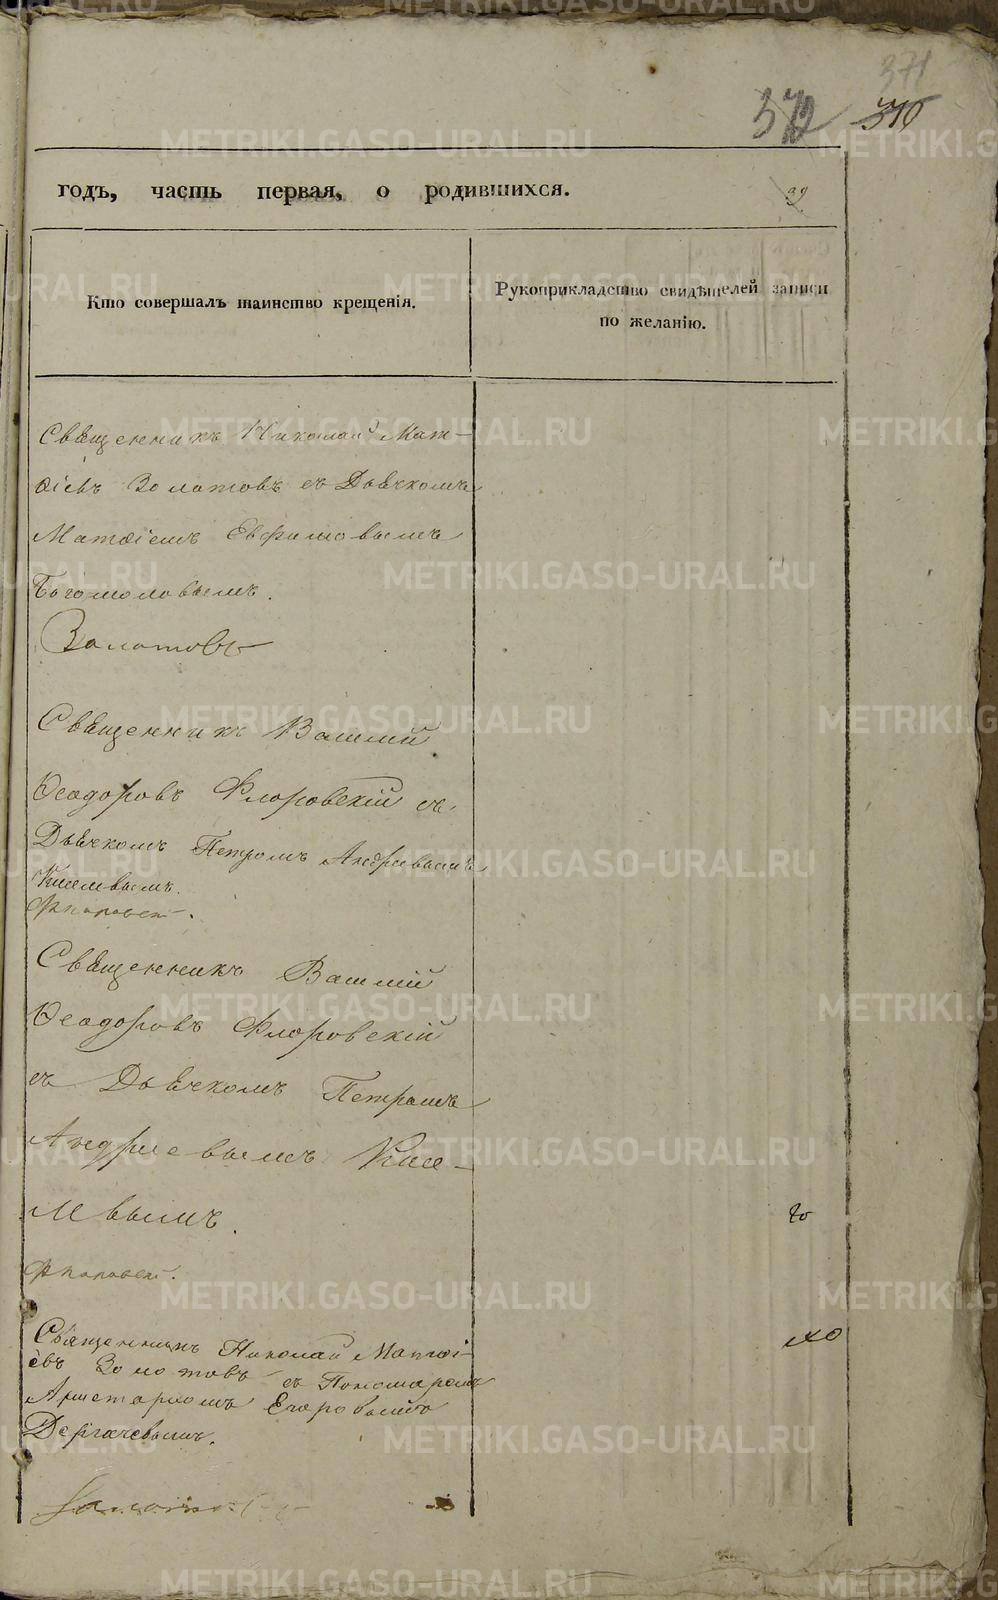 371
372 370
годъ, часть первая, о родившихся. 39
Кто совершалъ таинство крещенія.
Рукоприкладство свидѣтелей записи
по желанію.
Священникъ Николай Мат-
ѳіевъ Золотовъ съ Дьячкомъ
Матѳіемъ Евфимовымъ
Богомоловымъ.
Золотовъ
Священникъ Василій
Ѳеодоровъ Флоровскій съ
Дьячкомъ Петромъ Андреевымъ
Киселевымъ.
Флоровск.
Священникъ Василій
Ѳеодоровъ Флоровскій
съ Дьячкомъ Петромъ
Андреевымъ Кисе-
левымъ.
Флоровск.
Священникъ Николай Матѳі-
евъ Золотовъ съ Пономаремъ
Аристархомъ Егоровымъ
Дергачевымъ.
METRIKI.GASO-URAL.RU